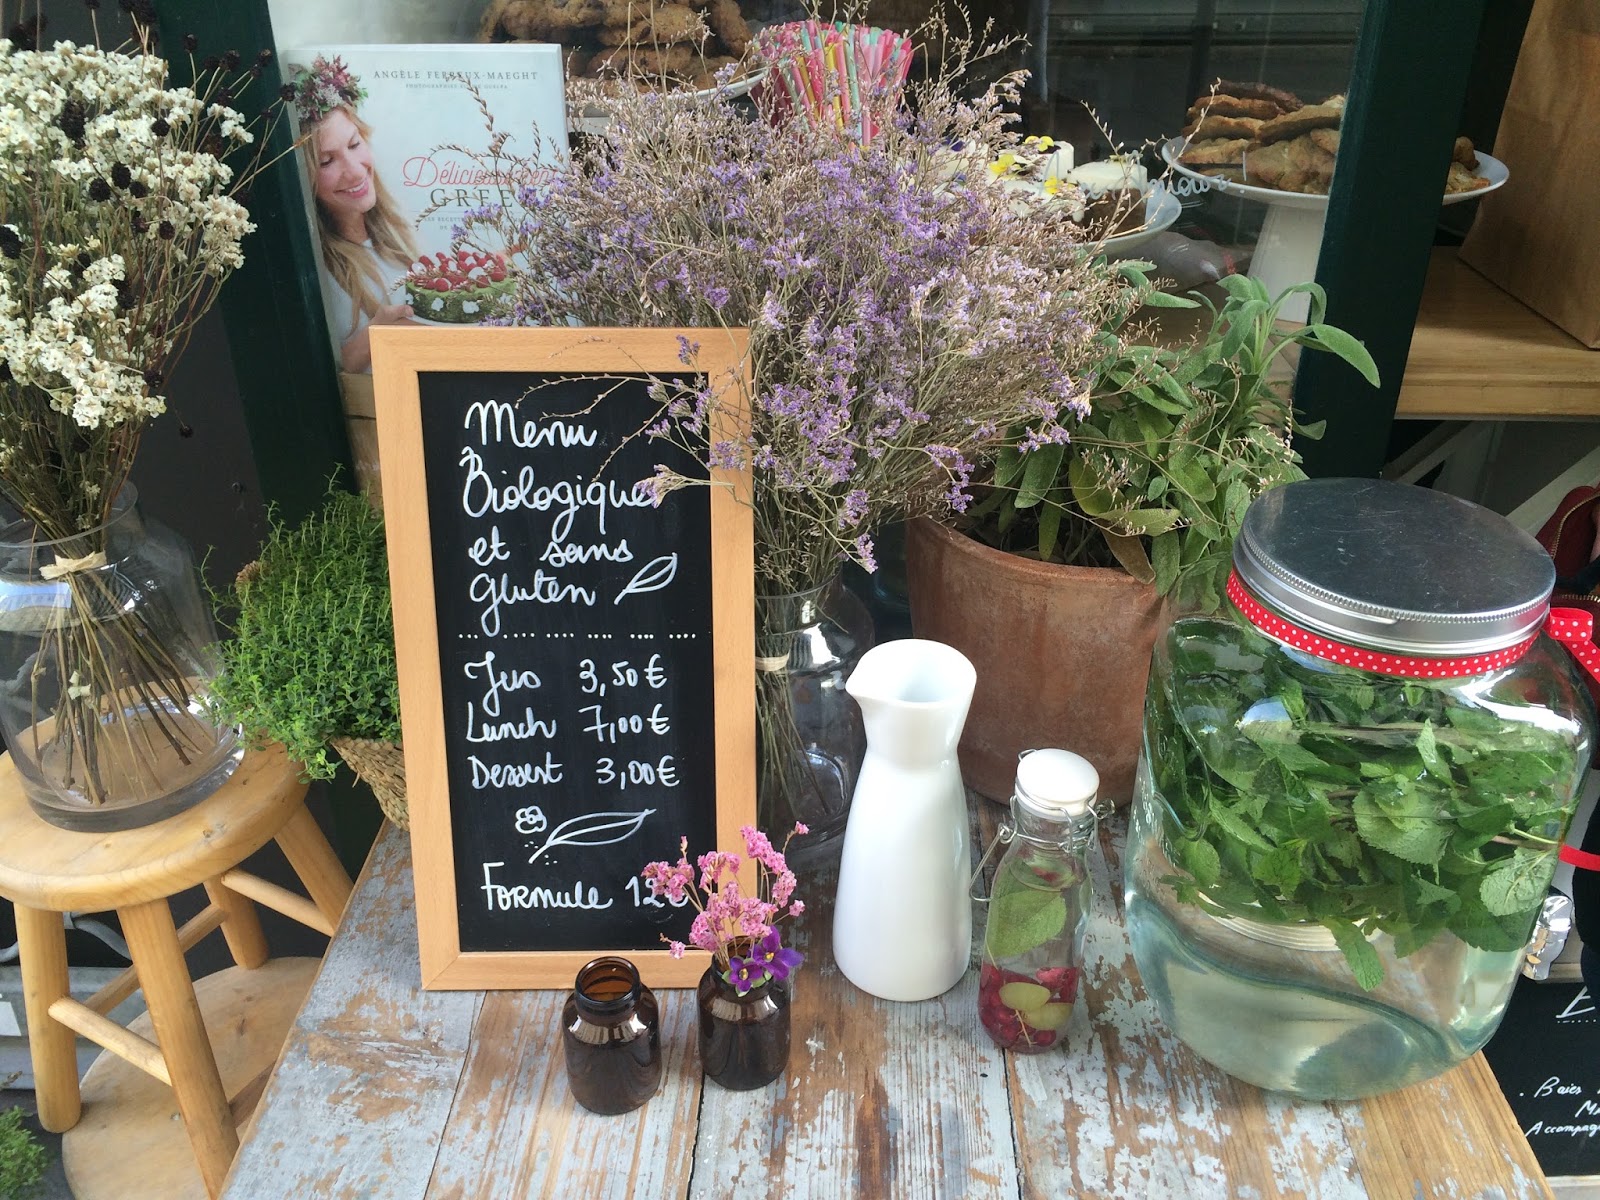 ANGÈLE FERREUX-MAEGHT
Délicieusement
GREEN
Menu
Biologique
et sans
gluten
Jus 3,50€
Lunch 7,00€
Dessert 3,00€
Formule 12€
Baies
Accompag